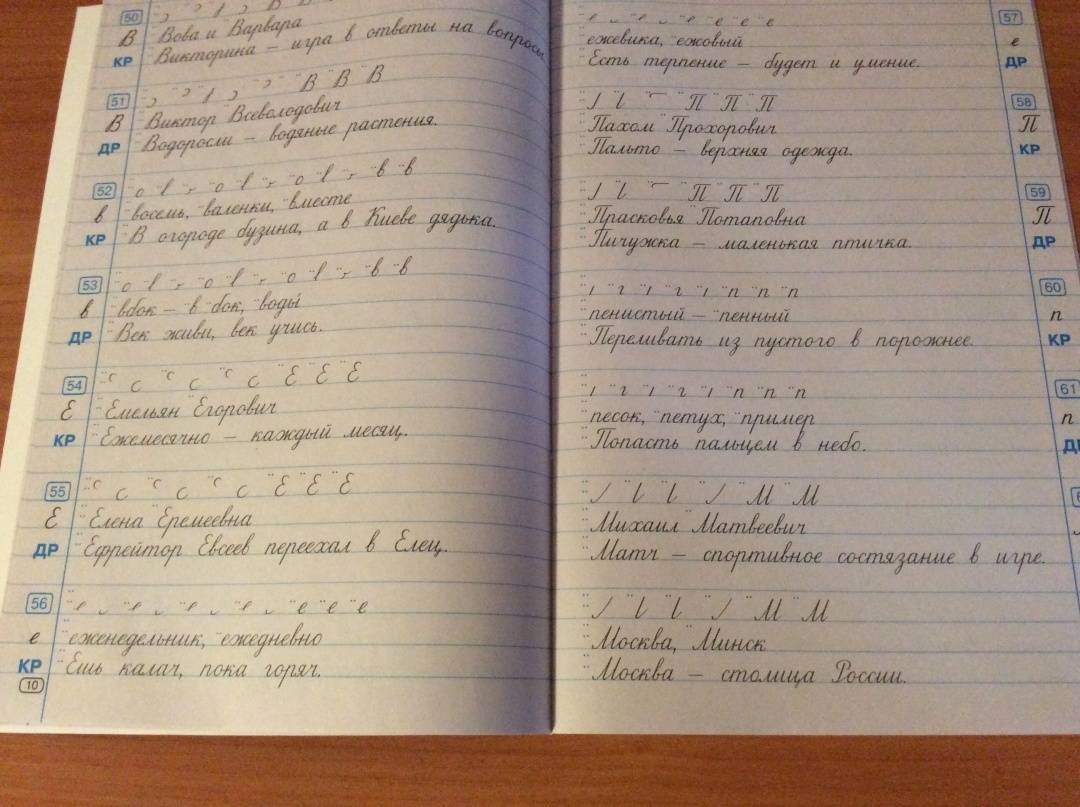 50
В В
В Вова и Варвара
КР Викторина – игра в ответы на вопросы
51 В В В
В Виктор Всеволодович
ДР Водоросли – водяные растения.
52 в в
в восемь, валенки, вместе
КР В огороде бузина, а в Киеве дядька.
53 в в
в вбок – в бок, воды́
ДР Век живи, век учись.
54 Е Е Е
Е Емельян Егорович
КР Ежемесячно – каждый месяц.
55 Е Е Е
Е Елена Еремеевна
ДР Ефрейтор Евсеев переехал в Елец.
56 е е е
е еженедельник, ежедневно
КР Ешь калач, пока горяч.
10
е е е 57
ежевика, ежовый е
Есть терпение – будет и умение. ДР
П П П 58
Пахом Прохорович П
Пальто – верхняя одежда. КР
П П П 59
Прасковья Потаповна П
Пичужка – маленькая птичка. ДР
п п п 60
пенистый – пенный п
Переливать из пустого в порожнее. КР
п п п 61
песок, петух, пример п
Попасть пальцем в небо.
М М
Михаил Матвеевич
Матч – спортивное состязание в игре.
М М
Москва, Минск
Москва – столица России.